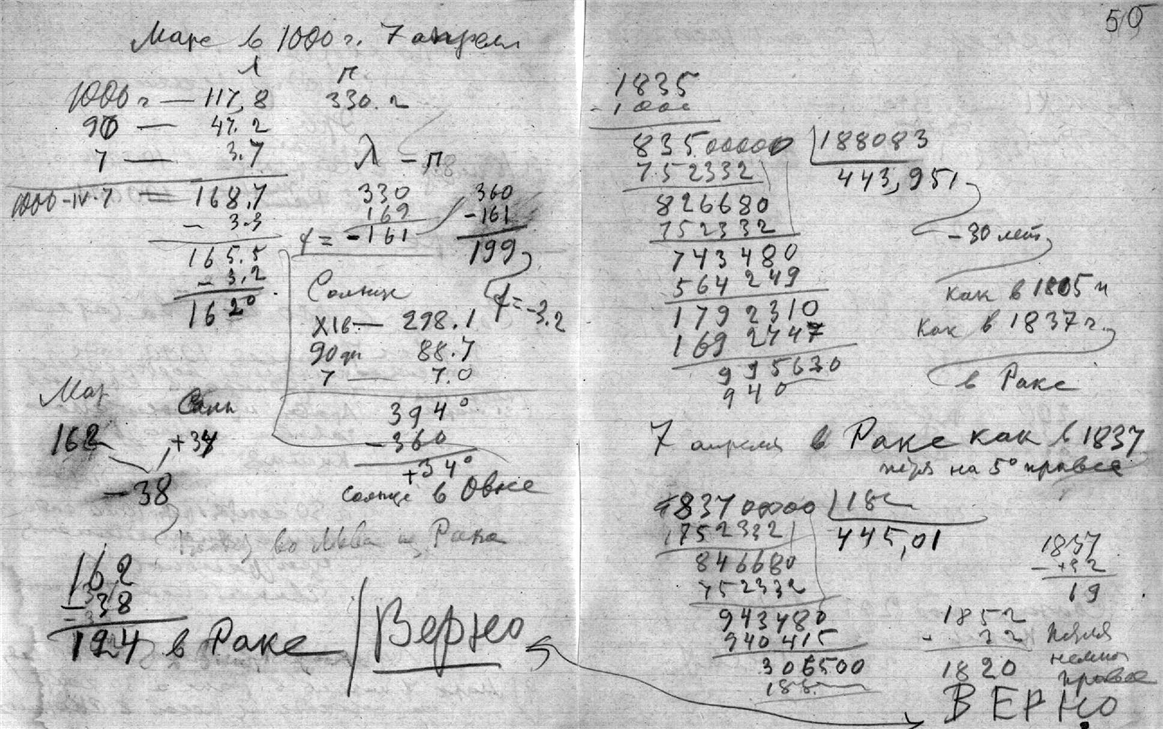 Марс в 1000 г. 7 апреля
Л П
1000 г — 117,8 330.2
90 — 47.2
7 — 3.7 λ – п
1000-IV.7 168.7
– 3.3
165.5
– 3.2
162°
330
169
f = –161
360
–161
199
f = –3.2
Солнце
XII6 — 298.1
90 дн 88.7
7 — 7.0
394°
– 360
+34°
Солнце в Овне
Мар Солн
162 +34
– 38
во Льве из Рака
162
– 38
124 в Раке / Верно
50
1835
- 1000
83500000 | 188083
752332 443,951
826680
752332
743480
564249
1792310
1692747
995630
940
– 30 лет
как в 1805 и
как в 1837 г.
в Раке
7 апреля в Раке как в 1837
на 5° правее
83700000 | 188
752332 445,01
846680
752332
943480
940415
306500
188
1837
19
1852
- 32
1820
правее
ВЕРНО